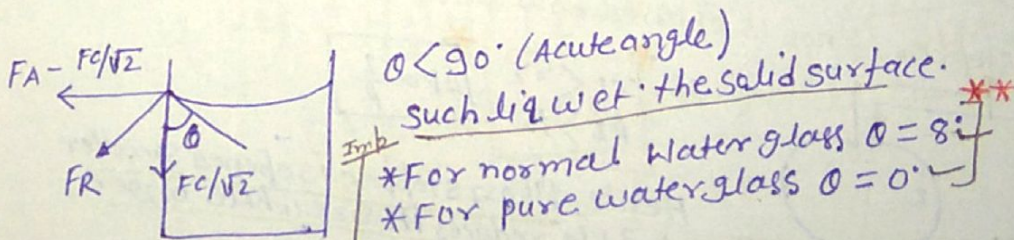 FA - FC/√2
θ
FR
FC/√2
θ < 90° (Acute angle)
such liq wet the solid surface.
Imp
**
*For normal Water glass θ = 8°
*For pure water glass θ = 0°